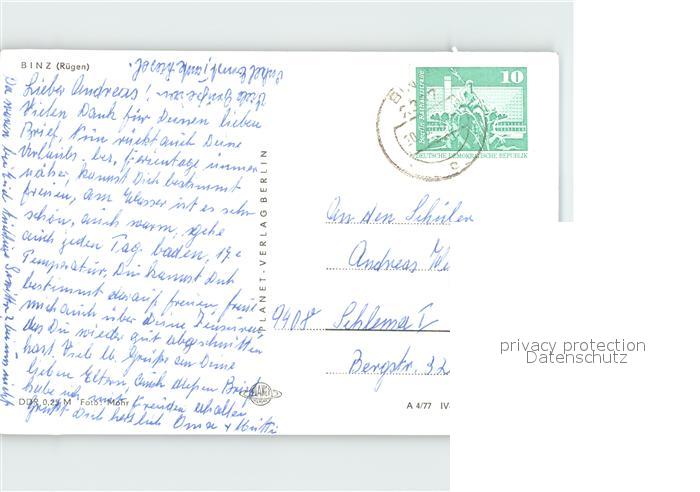 BINZ (Rügen)
Lieber Andreas!
Vielen Dank für Deinen lieben
Brief, Nun rückt auch Deine
Urlaubs, bez. Ferientage immer
näher, kannst Dich bestimmt
freuen, am Wasser ist es sehr
schön, auch warm, gehe
auch jeden Tag baden, 19°
Temperatur, Du kannst Dich
bestimmt darauf freuen, freue
mich auch über Deine Zensuren
das Du wieder gut abgeschnitten
hast. Viele lb. Grüße an Deine
lieben Eltern, auch diesen Brief
habe ich mit Freuden erhalten
grüßt Dich herzlich Oma + Mutti
DDR 0,25 M Foto: Mohr
PLANET-VERLAG BERLIN
PLANET
A 4/77 IV-
10
DEUTSCHE DEMOKRATISCHE REPUBLIK
An den Schüler
Andreas
9408 Schlema I
Bergstr. 32
privacy protection
Datenschutz